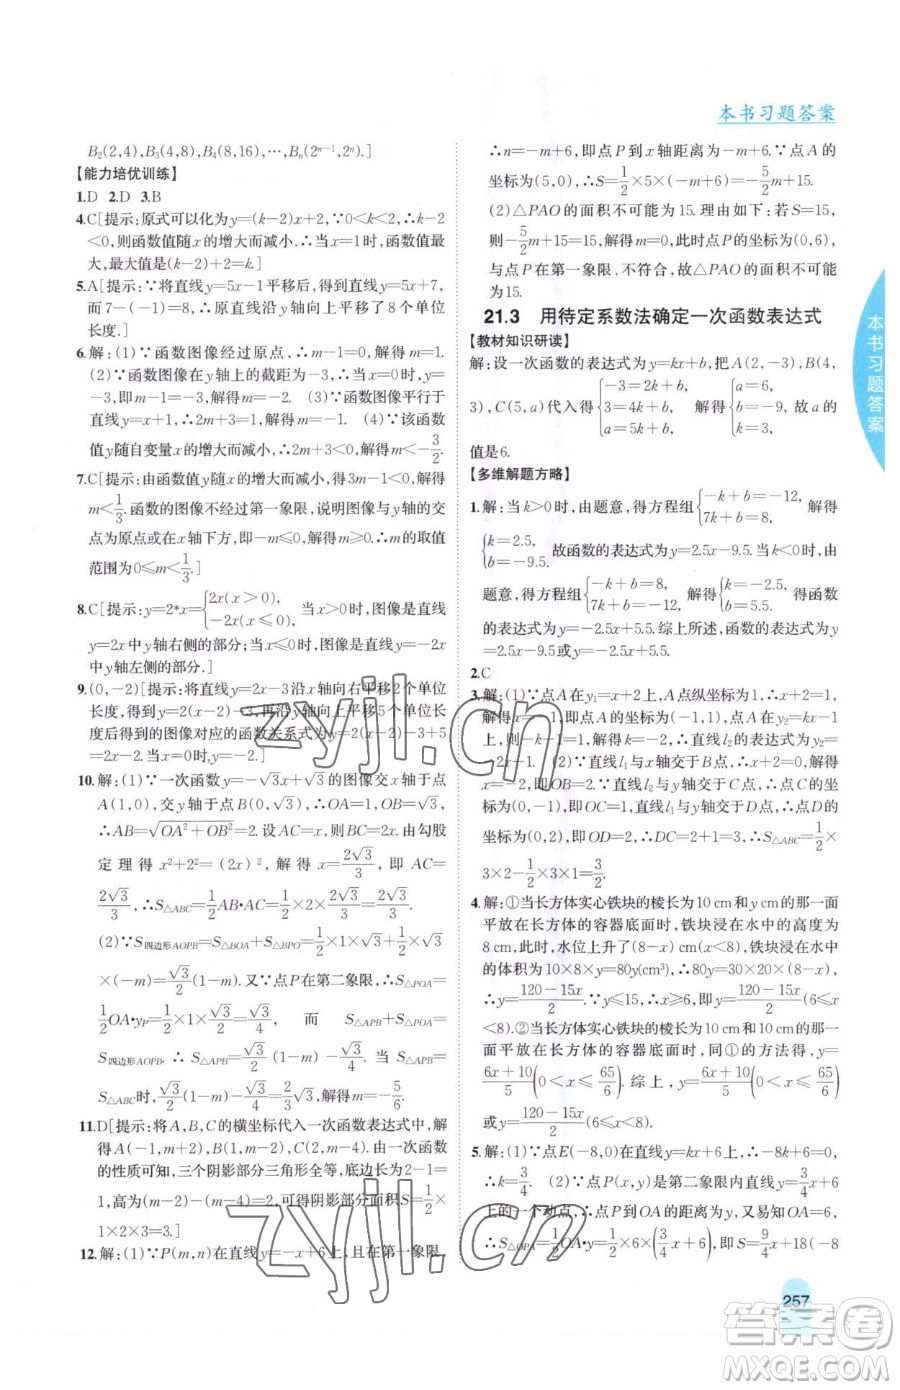 本书习题答案
B₂(2,4),B₃(4,8),B₄(8,16),…,Bₙ(2ⁿ⁻¹,2ⁿ).]
【能力培优训练】
1.D 2.D 3.B
4.C[提示:原式可以化为y=(k-2)x+2,∵0<k<2,∴k-2
<0,则函数值随x的增大而减小.∴当x=1时,函数值最
大,最大值是(k-2)+2=k.]
5.A[提示:∵将直线y=5x-1平移后,得到直线y=5x+7,
而7-(-1)=8,∴原直线沿y轴向上平移了8个单位
长度.]
6.解:(1)∵函数图像经过原点,∴m-1=0,解得m=1.
(2)∵函数图像在y轴上的截距为-3,∴m-1=
-3,解得m=-2. (3)∵函数图像平行于
直线y=x+1,∴2m+3=1,解得m=-1. (4)∵该函数
值y随自变量x的增大而减小,∴2m+3<0,解得m<-3/2.
7.C[提示:由函数值y随x的增大而减小,得3m-1<0,解得
m<1/3.函数的图像不经过第一象限,说明图像与y轴的交
点为原点或在y轴下方,即-m≤0,解得m≥0.∴m的取值
范围为0≤m<1/3.]
8.C[提示:y=2*x={2x(x>0), -2x(x≤0),当x>0时,图像是直线
y=2x中y轴右侧的部分;当x≤0时,图像是直线y=-2x
中y轴左侧的部分.]
9.(0,-2)[提示:将直线y=2x-3沿x轴向右平移2个单位
长度,得到y=2(x-2)-3,再沿y轴向上平移5个单位长
度后得到的图像对应的函数关系式为y=2(x-2)-3+5
=2x-2.当x=0时,y=-2.]
10.解:(1)∵一次函数y=-√3x+√3的图像交x轴于点
A(1,0),交y轴于点B(0,√3),∴OA=1,OB=√3.
∴AB=√(OA²+OB²)=2.设AC=x,则BC=2x.由勾股
定理得x²+2²=(2x)²,解得x=2√3/3,即AC=
2√3/3,∴S△ABC=1/2AB·AC=1/2×2×2√3/3=2√3/3.
(2)∵S四边形AOPB=S△BOA+S△BPO=1/2×1×√3+1/2×√3
×(-m)=√3/2(1-m).又∵点P在第二象限,∴S△POA=
1/2OA·yP=1/2×1×√3/2=√3/4,而S△APB+S△POA=
S四边形AOPB,∴S△APB=√3/2(1-m)-√3/4.当S△APB=
S△ABC时,√3/2(1-m)-√3/4=2√3/3,解得m=-5/6.
11.D[提示:将A,B,C的横坐标代入一次函数表达式中,解
得A(-1,m+2),B(1,m-2),C(2,m-4).由一次函数
的性质可知,三个阴影部分三角形全等,底边长为2-1=
1,高为(m-2)-(m-4)=2,可得阴影部分面积S=1/2×
1×2×3=3.]
12.解:(1)∵P(m,n)在直线y=-x+6上,且在第一象限,
∴n=-m+6,即点P到x轴距离为-m+6.∵点A的
坐标为(5,0),∴S=1/2×5×(-m+6)=-5/2m+15.
(2)△PAO的面积不可能为15.理由如下:若S=15,
则-5/2m+15=15,解得m=0,此时点P的坐标为(0,6),
与点P在第一象限,不符合,故△PAO的面积不可能
为15.
21.3 用待定系数法确定一次函数表达式
【教材知识研读】
解:设一次函数的表达式为y=kx+b,把A(2,-3),B(4,
3),C(5,a)代入得{-3=2k+b, 3=4k+b, a=5k+b,解得{a=6, k=3, b=-9,故a的
值是6.
【多维解题方略】
1.解:当k>0时,由题意,得方程组{-k+b=-12, 7k+b=8,解得
{k=2.5, b=-9.5.故函数的表达式为y=2.5x-9.5.当k<0时,由
题意,得方程组{-k+b=8, 7k+b=-12,解得{k=-2.5, b=5.5.得函数
的表达式为y=-2.5x+5.5.综上所述,函数的表达式为y=
2.5x-9.5或y=-2.5x+5.5.
2.C
3.解:(1)∵点A在y₁=x+2上,A点纵坐标为1,∴x+2=1,
解得x=-1,即点A的坐标为(-1,1),点A在y₂=kx-1
上,∴1=-k-1,解得k=-2,∴直线l₂的表达式为y₂=
-2x-1.(2)∵直线l₁与x轴交于B点,∴点B的坐标为(-2,0),
即OB=2.∵直线l₂与y轴交于C点,∴点C的坐标为
(0,-1),即OC=1,直线l₁与y轴交于D点,∴点D的
坐标为(0,2),即OD=2,∴DC=2+1=3,∴S△ABC=1/2×
3×2-1/2×3×1=3/2.
4.解:①当长方体实心铁块的棱长为10 cm和y cm的那一面
平放在长方体的容器底面时,铁块浸在水中的高度为
8 cm,此时,水位上升了(8-x)cm(x<8),铁块浸在水中
的体积为10×8×y=80y(cm³),∴80y=30×20×(8-x),
∴y=(120-15x)/2.∵y≤15,∴x≥6,即y=(120-15x)/2(6≤x
<8).②当长方体实心铁块的棱长为10 cm和10 cm的那
一面平放在长方体的容器底面时,同①的方法得,y=
(6x+10)/5(0<x≤65/6).综上,y=(6x+10)/5(0<x≤65/6)
或y=(120-15x)/2(6≤x<8).
5.解:(1)∵点E(-8,0)在直线y=kx+6上,∴0=-8k+6,
∴k=3/4. (2)∵点P(x,y)是第二象限内直线y=3/4x+6
上的一个动点,∴点P到OA的距离为y,又易知OA=6,
∴S△OPA=1/2OA·y=1/2×6×(3/4x+6),即S=9/4x+18(-8
本书习题答案
257
zyjl.cn
zyjl.cn
答案圈
MXQE.COM